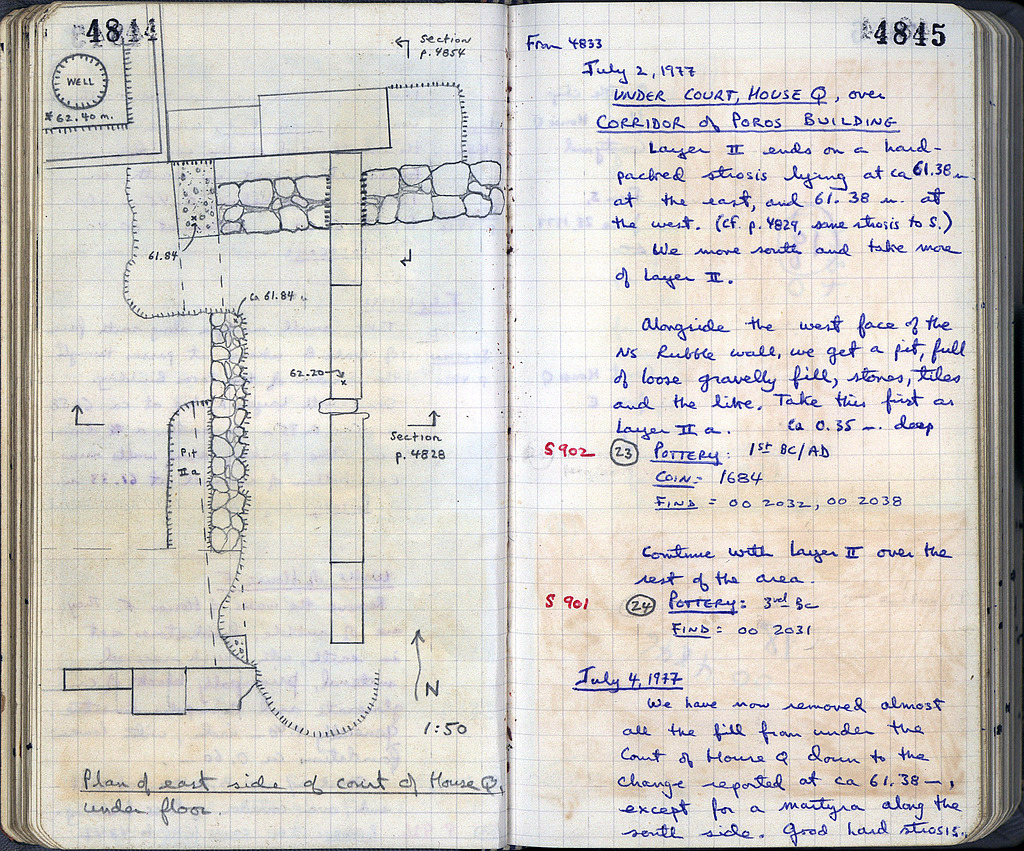 4844
section
p. 4854
WELL
62.40 m.
61.84
Ca 61.84
62.20
Section
p. 4828
Pit
II a
N
1:50
Plan of east side of court of House Q,
under floor.
4845
From 4833
July 2, 1977
UNDER COURT, HOUSE Q, over
CORRIDOR of POROS BUILDING
Layer II ends on a hard-
packed strosis lying at ca 61.38 m
at the east, and 61.38 m. at
the west. (Cf. p. 4829, same strosis to S.)
We move south and take more
of Layer II.
Alongside the west face of the
NS Rubble wall, we get a pit, full
of loose gravelly fill, stones, tiles
and the like. Take this first as
Layer II a. Ca 0.35 m. deep
S 902 23 POTTERY: 1st BC/AD
COIN: 1684
FIND = 00 2032, 00 2038
Continue with Layer II over the
rest of the area.
S 901 24 POTTERY: 3rd BC
FIND = 00 2031
July 4, 1977
We have now removed almost
all the fill from under the
Court of House Q down to the
change reported at ca 61.38 m,
except for a martyra along the
south side. Good hard strosis.